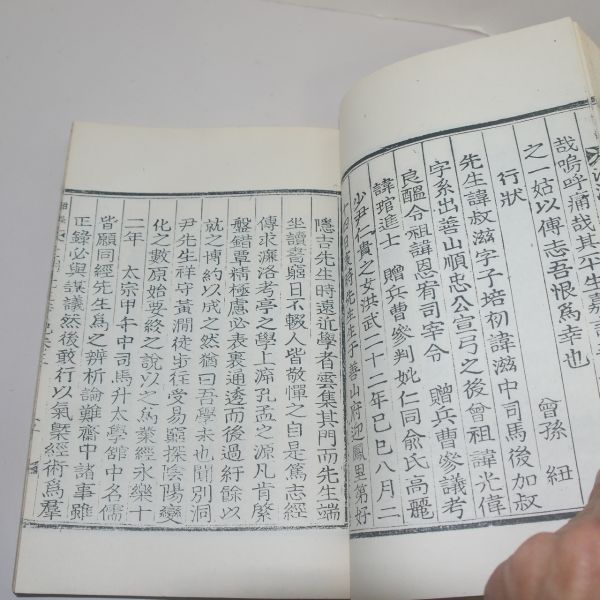 哉嗚呼痛哉其年生
之一姑以傳志吾恨爲幸也
曾孫 紐
行狀
先生諱叔滋字子培初諱滋中司馬後加叔
字系出善山順忠公宣弓之後曾祖諱光偉
良醞令祖諱恩宥司宰令 贈兵曹參議考
諱琯進士 贈兵曹參判妣仁同俞氏高麗
少尹仁貴之女洪武二十二年己巳八月二
日 先生生于善山府迎鳳里第好
隱吉先生時遠近學者雲集其門而先生端
坐讀書窮日不輟人皆敬憚之自是篤志經
傳求濂洛考亭之學上泝孔孟之源凡肯綮
盤錯覃精極慮必表裏通透而後過紆餘以
就之博約以成之然猶曰吾學未也聞別洞
尹先生祥守黃澗徒步往受易窮探陰陽變
化之數原始要終之說以之爲業經永樂十
二年 太宗甲午中司馬升太學舘中名儒
皆願同經先生爲之辨析論難齋中諸事雖
正錄必與謀議然後敢行以氣槩經術爲羣